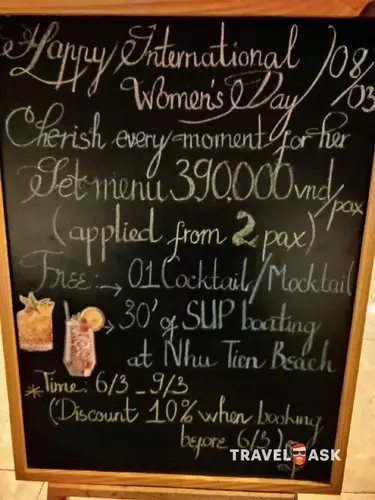 Happy International 08/03
Women's Day
Cherish every moment for her
Set menu 390.000 vnd/pax
(applied from 2 pax)
Free: → 01 Cocktail/Mocktail
→ 30' of SUP boating
at Nhu Tien Beach
* Time: 6/3 _ 9/3
(Discount 10% when booking
before 6/3)
TRAVEL ASK